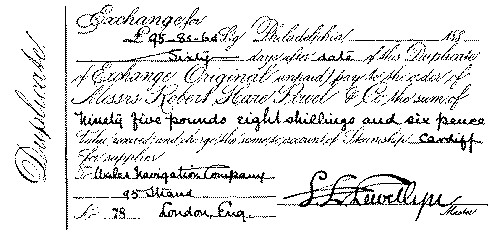 Duplicate
Exchange for
£ 95-8s-6d Stg Philadelphia 188
Sixty days after date of this Duplicate
of Exchange Original unpaid pay to the order of
Messrs Robert Hare Powel & Co the sum of
Ninety five pounds eight shillings and six pence
Value received and charge the same to account of Steamship Cardiff
for supplies
To Navigation Company
95 Strand
No 78 London, Eng. Master